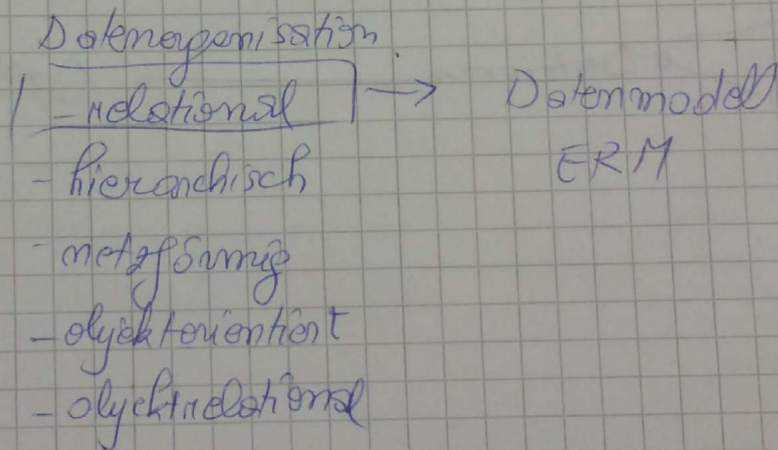 Datenorganisation
- relational → Datenmodell
ERM
- hierarchisch
- netzförmig
- objektorientiert
- objektrelational